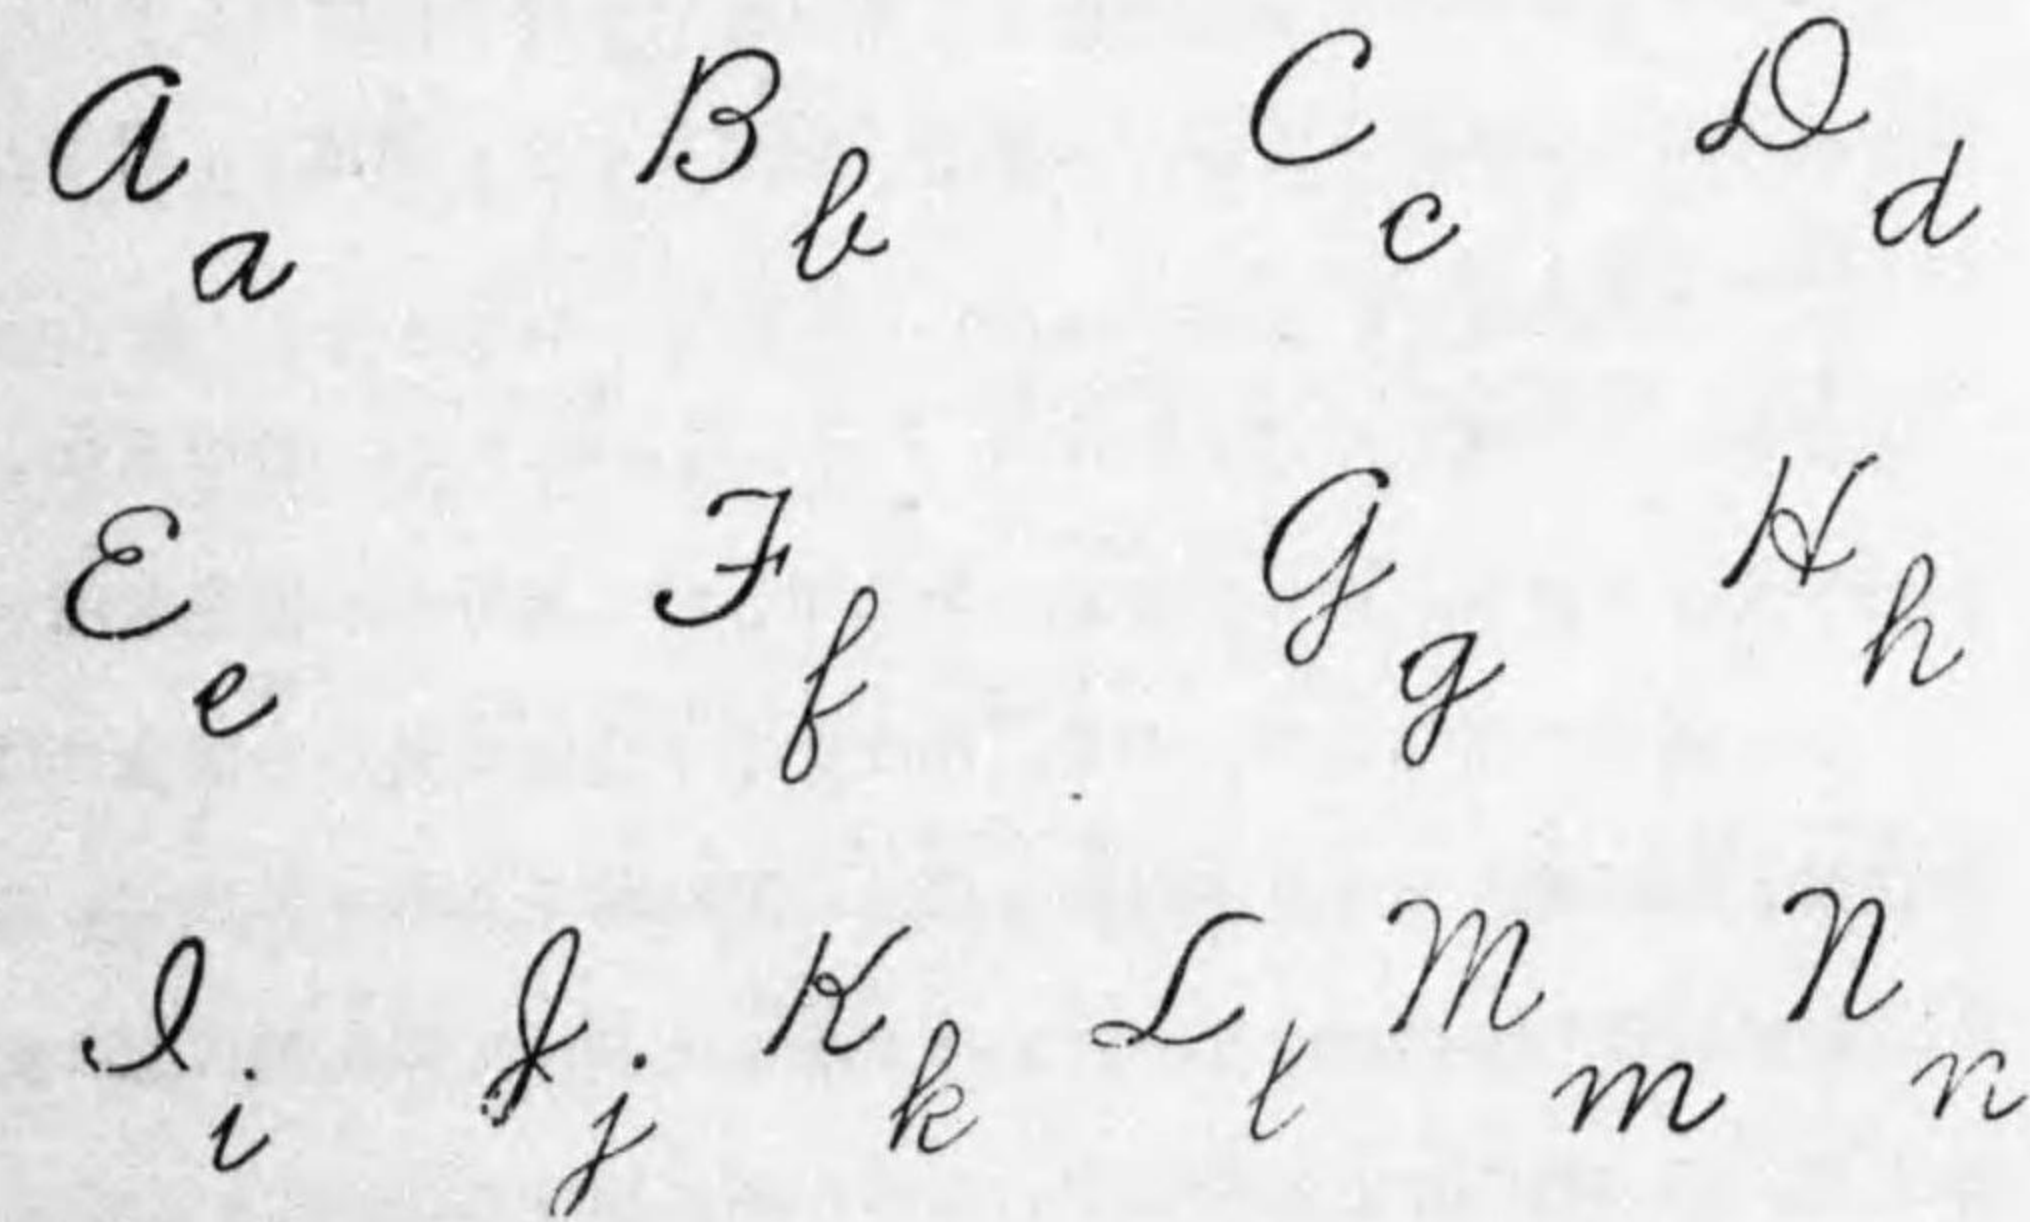 A a B b C c D d
E e F f G g H h
I i J j K k L l M m N n